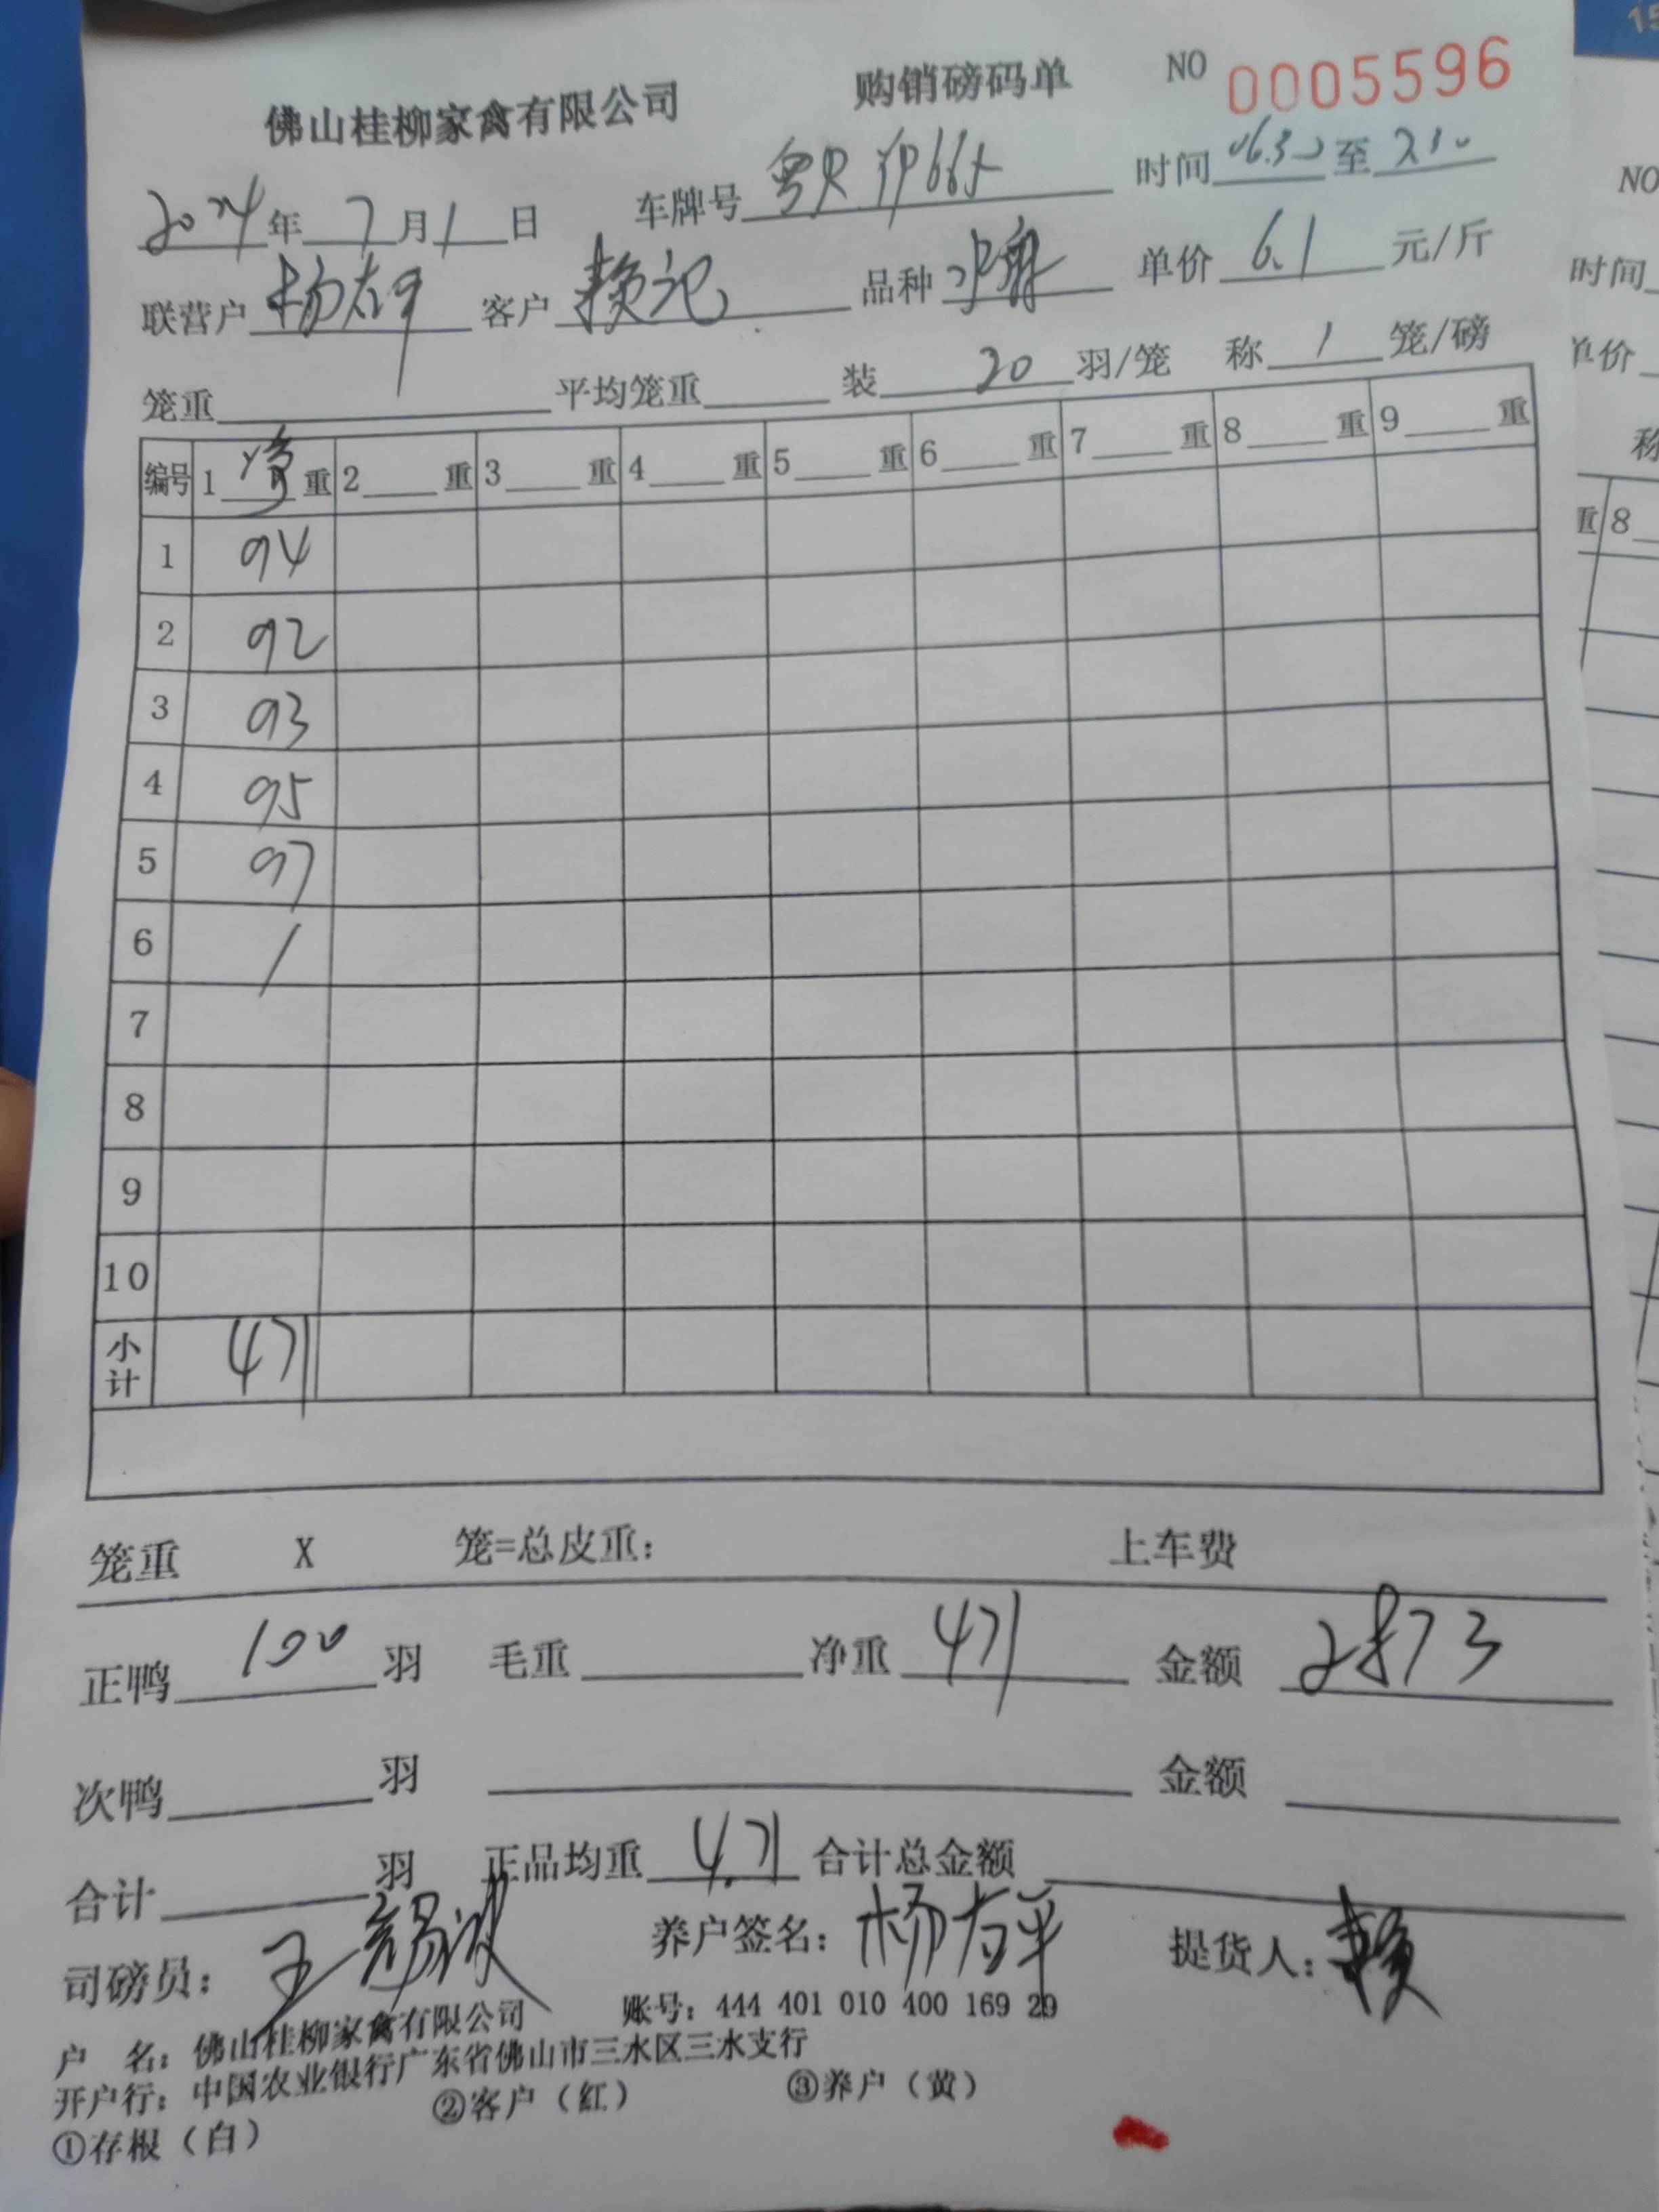 佛山桂柳家禽有限公司 购销磅码单 NO 0005596
2024年7月1日 车牌号 时间 至
联营户 杨右平 客户 赖记 品种 单价 6.1 元/斤
笼重 平均笼重 装 20 羽/笼 称 1 笼/磅
编号 1 净 重 2 重 3 重 4 重 5 重 6 重 7 重 8 重 9 重
1 94
2 92
3 93
4 95
5 97
6 /
7
8
9
10
小计 471
笼重 X 笼=总皮重: 上车费
正鸭 100 羽 毛重 净重 471 金额 2873
次鸭 羽 金额
合计 羽 正品均重 4.71 合计总金额
司磅员: 王 养户签名: 杨右平 提货人: 赖
户 名: 佛山桂柳家禽有限公司 账号: 444 401 010 400 169 29
开户行: 中国农业银行广东省佛山市三水区三水支行
①存根(白) ②客户(红) ③养户(黄)
NO
时间
单价
称
重 8